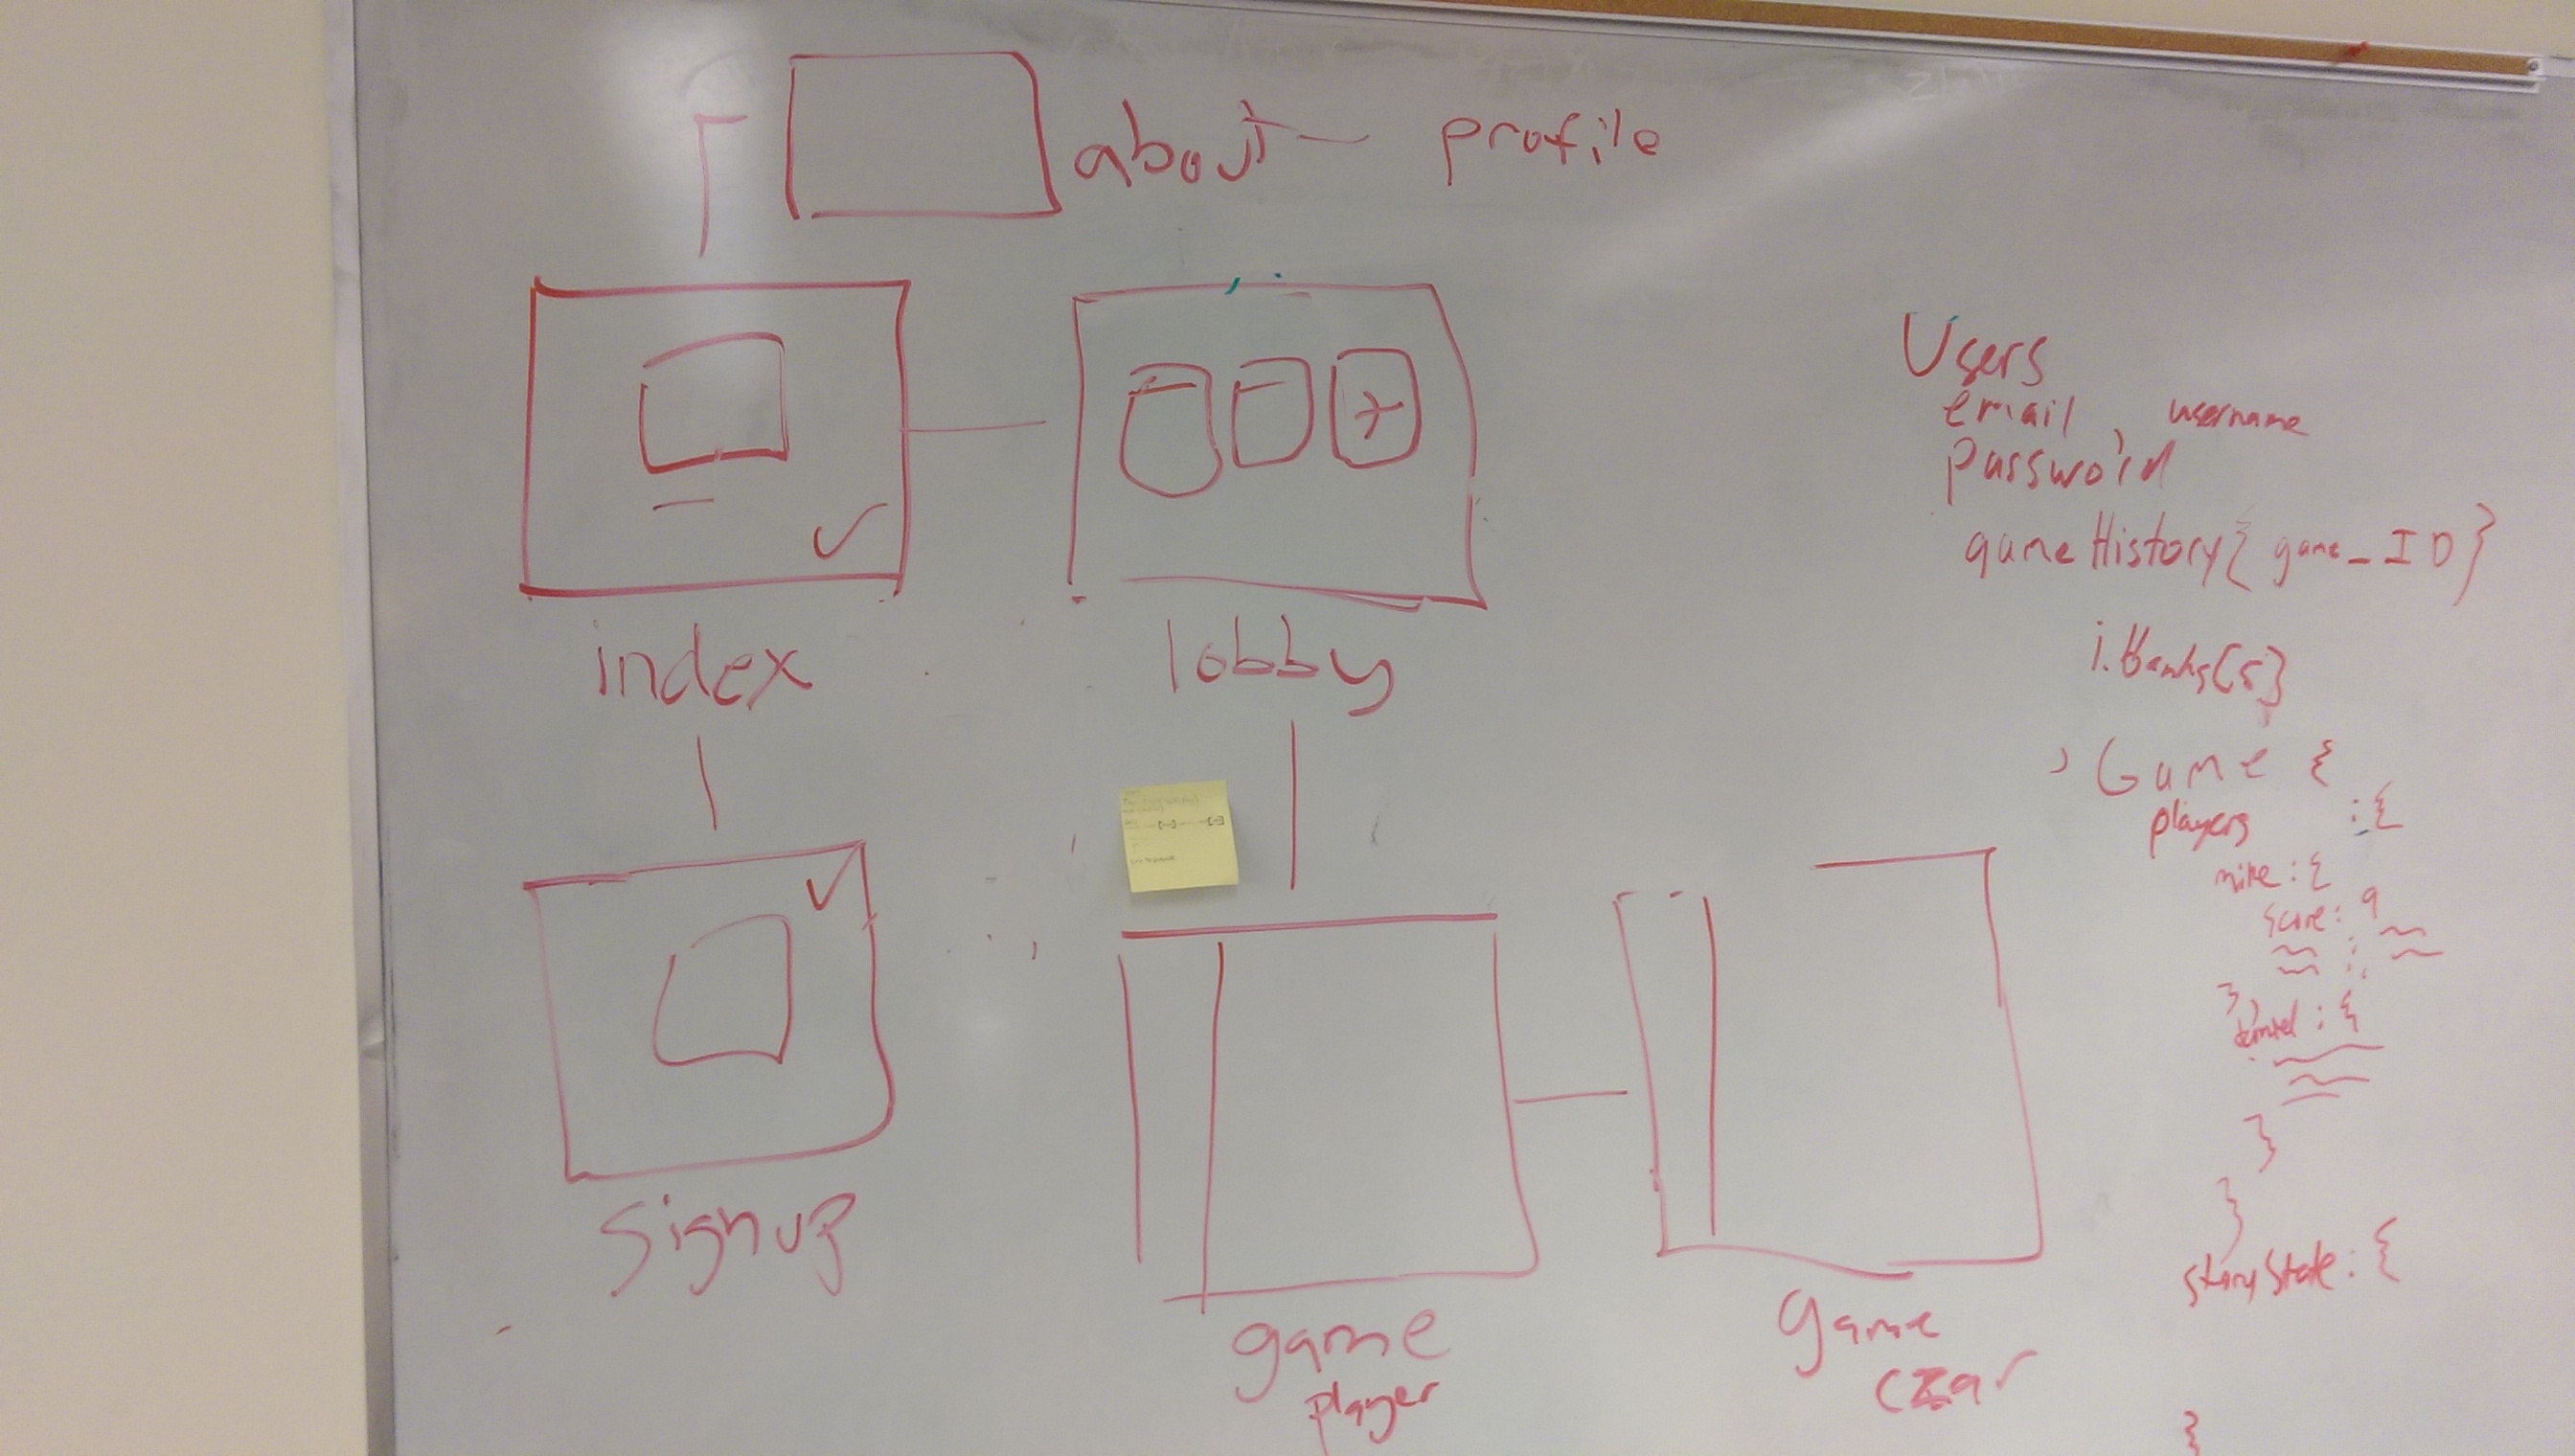 about — profile
index
lobby
signup
game
player
game
czar
Users
email, username
password
gameHistory{game_ID}
Game {
players : {
mike : {
score : 9
}
}
}
storyState : {
}